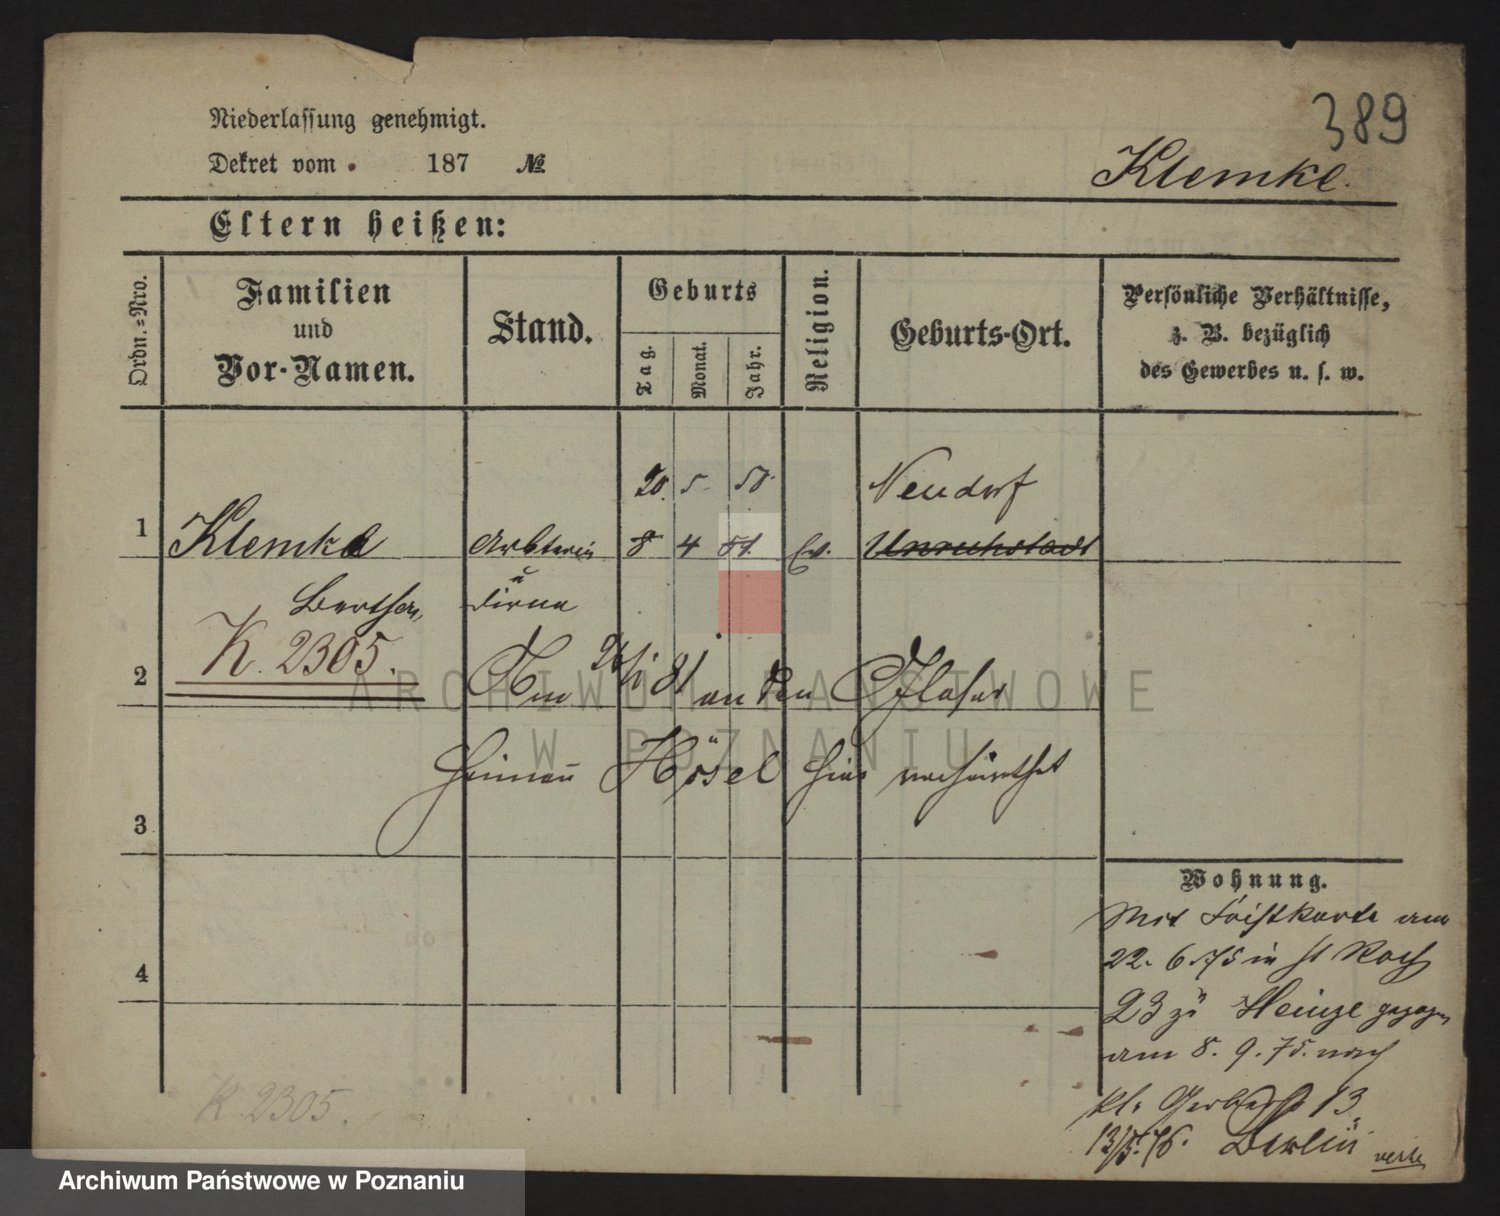 389
Niederlassung genehmigt.
Dekret vom 187 №
Klemke.
Eltern heißen:
Ordn.=Nro.
Familien
und
Vor-Namen.
Stand.
Geburts
Tag.
Monat.
Jahr.
Religion.
Geburts-Ort.
Persönliche Verhältnisse,
z. B. bezüglich
des Gewerbes u. s. w.
20. 5. 50. Neudorf
1 Klemke Arbterin 8 4 51. Ev. Unruhstadt
Bertha, Dirne
K. 2305.
2 Am 26/1 81 an den Glaser
Hösel hier verheirathet
3
4
Wohnung.
Mit am
22. 6. 75 in St Roch
23 zu Heinze gezogen
am 8. 9. 75. nach
kl. Gerberstr 13
13/5. 76. Berlin
verte
K. 2305.
ARCHIWUM PAŃSTWOWE
W POZNANIU
Archiwum Państwowe w Poznaniu